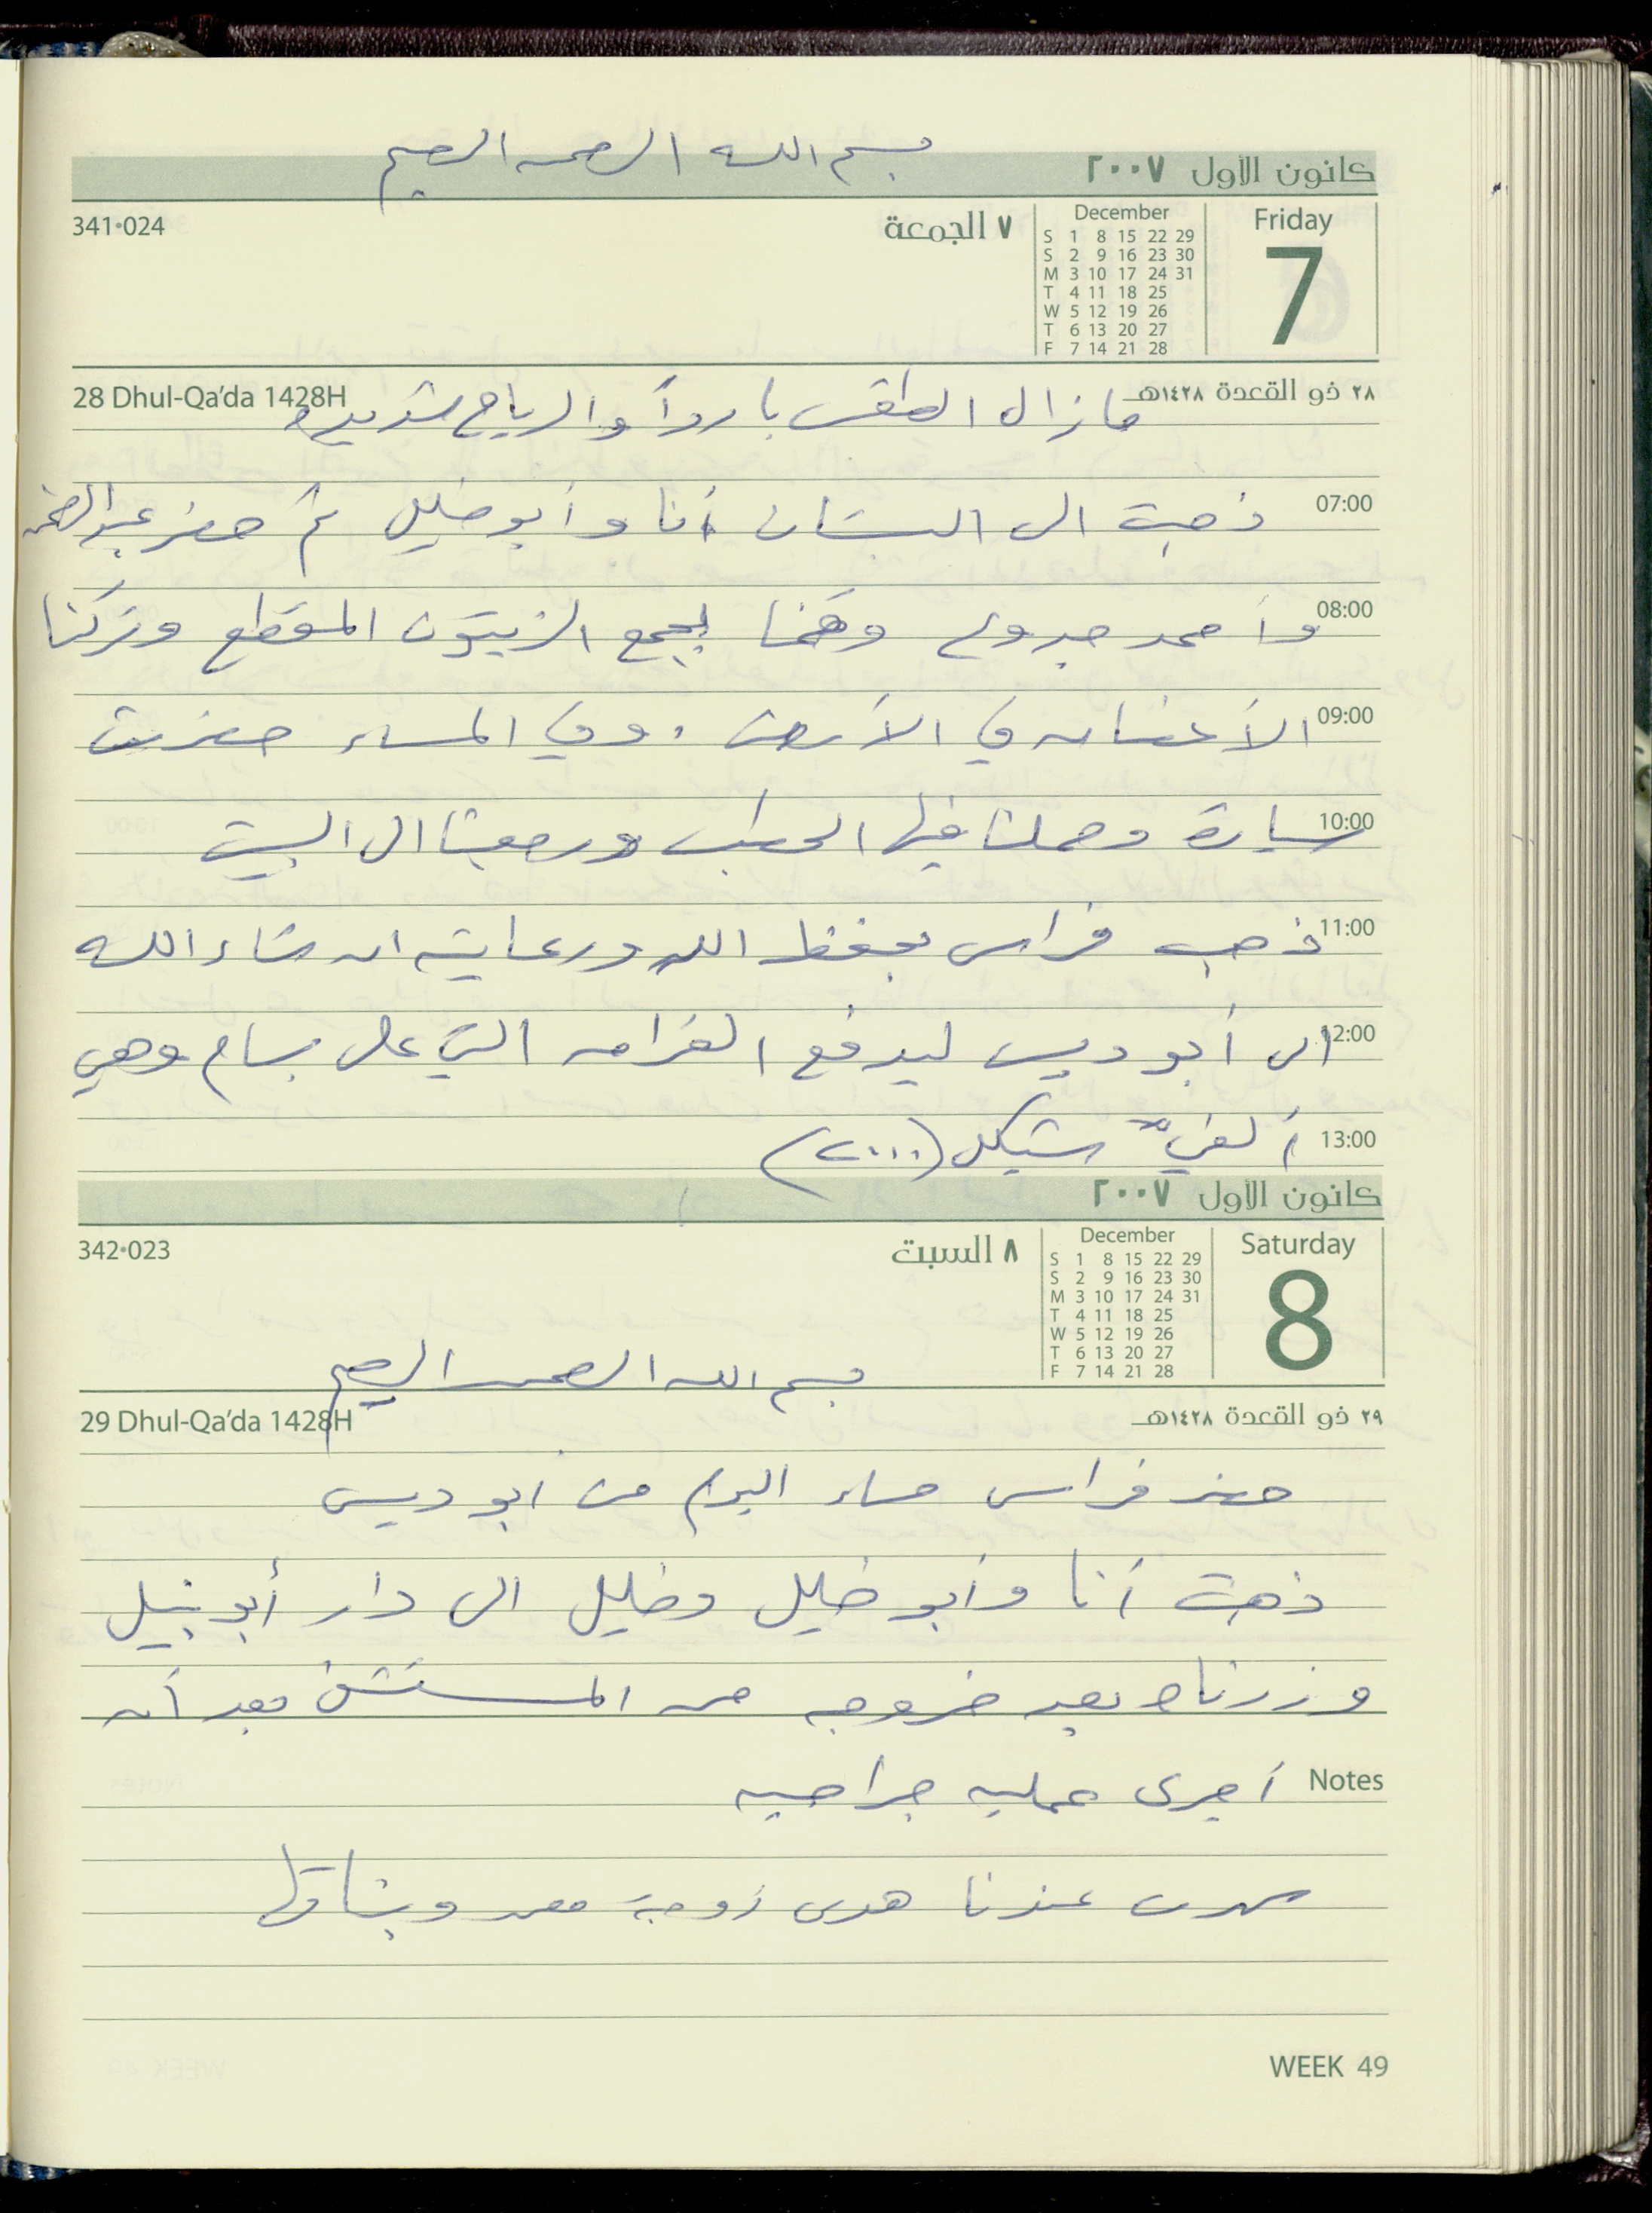 بسم الله الرحمن الرحيم
كانون الأول ٢٠٠٧
341•024
٧ الجمعة
December
S 1 8 15 22 29
S 2 9 16 23 30
M 3 10 17 24 31
T 4 11 18 25
W 5 12 19 26
T 6 13 20 27
F 7 14 21 28
Friday
7
28 Dhul-Qa'da 1428H
٢٨ ذو القعدة ١٤٢٨هـ
مازال الطقس بارداً والرياح شديده
07:00
ذهبت الى البستان أنا وأبو خليل ثم حضر عبد الرحمن
08:00
وأحمد جدوع وقمنا بجمع الزيتون المقطع وتركنا
09:00
الأغصان في الأرض . وفي المساء حضرت
10:00
سيارة وحملنا فيها الحطب ورجعنا الى البيت
11:00
ذهب فراس بحفظ الله ورعايته ان شاء الله
12:00
الى أبو ديس ليدفع الغرامه التي على بسام وهي
13:00
ألفي شيكل (٢٠٠٠)
كانون الأول ٢٠٠٧
342•023
٨ السبت
December
S 1 8 15 22 29
S 2 9 16 23 30
M 3 10 17 24 31
T 4 11 18 25
W 5 12 19 26
T 6 13 20 27
F 7 14 21 28
Saturday
8
بسم الله الرحمن الرحيم
29 Dhul-Qa'da 1428H
٢٩ ذو القعدة ١٤٢٨هـ
حضر فراس مساء اليوم من ابو ديس
ذهبت أنا وأبو خليل وخليل الى دار أبو نبيل
وزرناه بعد خروجه من المستشفى بعد أن
Notes
أجرى عمليه جراحيه
سهرت عندنا هدى زوجة محمد وبناتها
WEEK 49